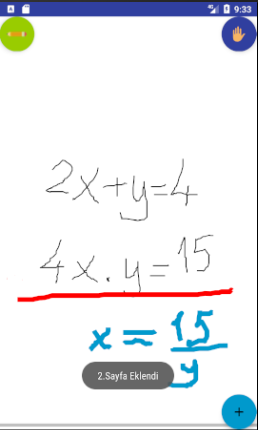 9:33
2x+y=4
4x.y=15
x=15/y
2.Sayfa Eklendi
+